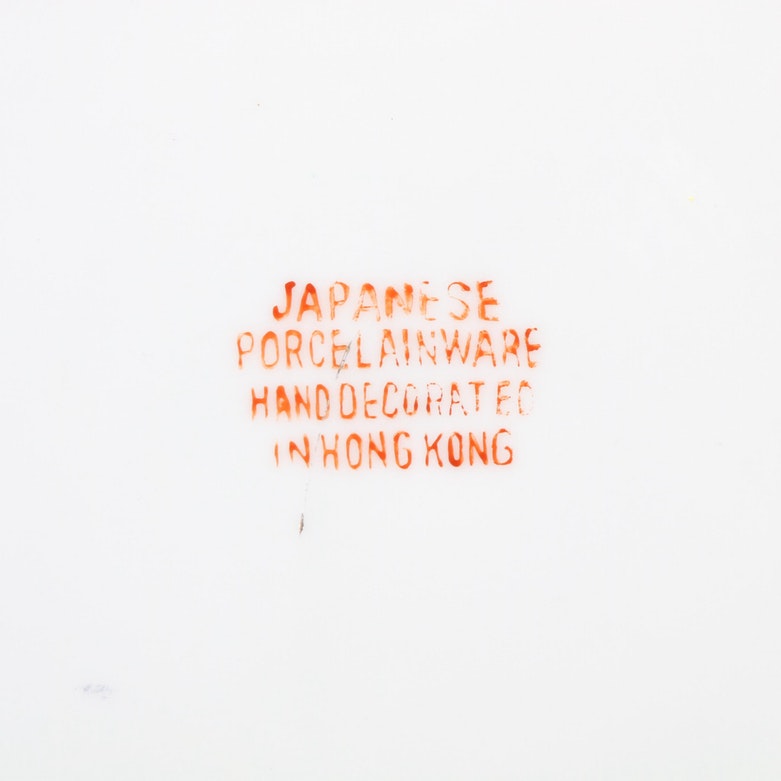 JAPANESE
PORCELAINWARE
HAND DECORATED
IN HONG KONG